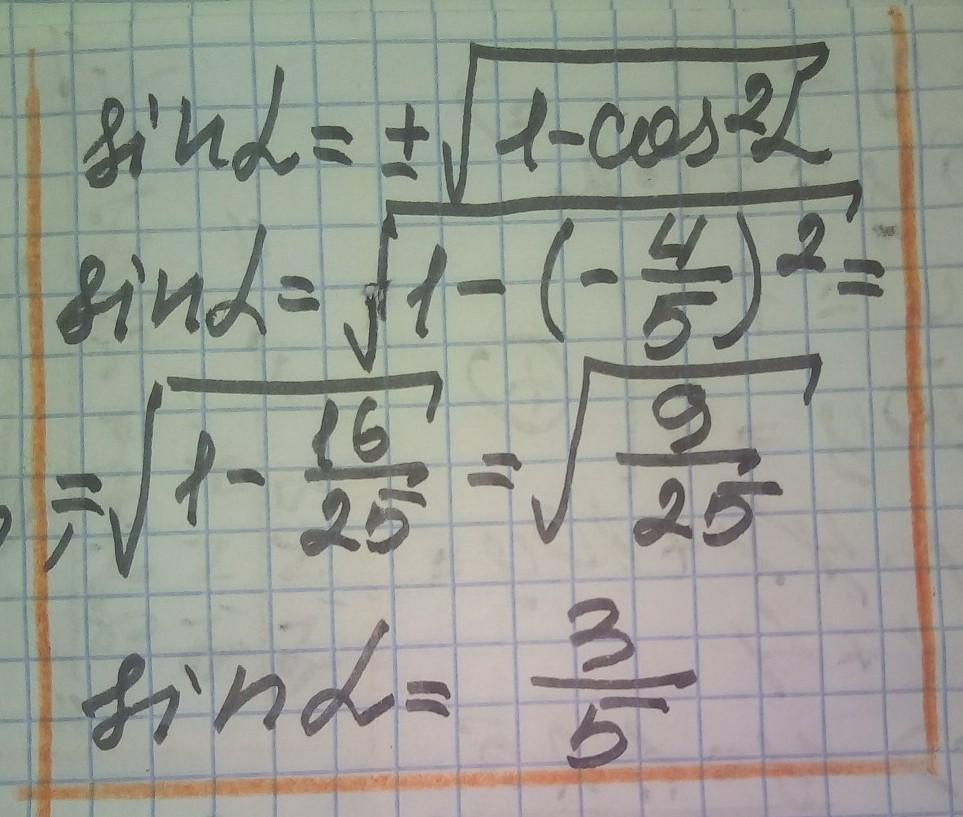 sinα = ±√(1-cos²α)
sinα = √(1-(-4/5)²) =
= √(1-16/25) = √(9/25)
sinα = 3/5